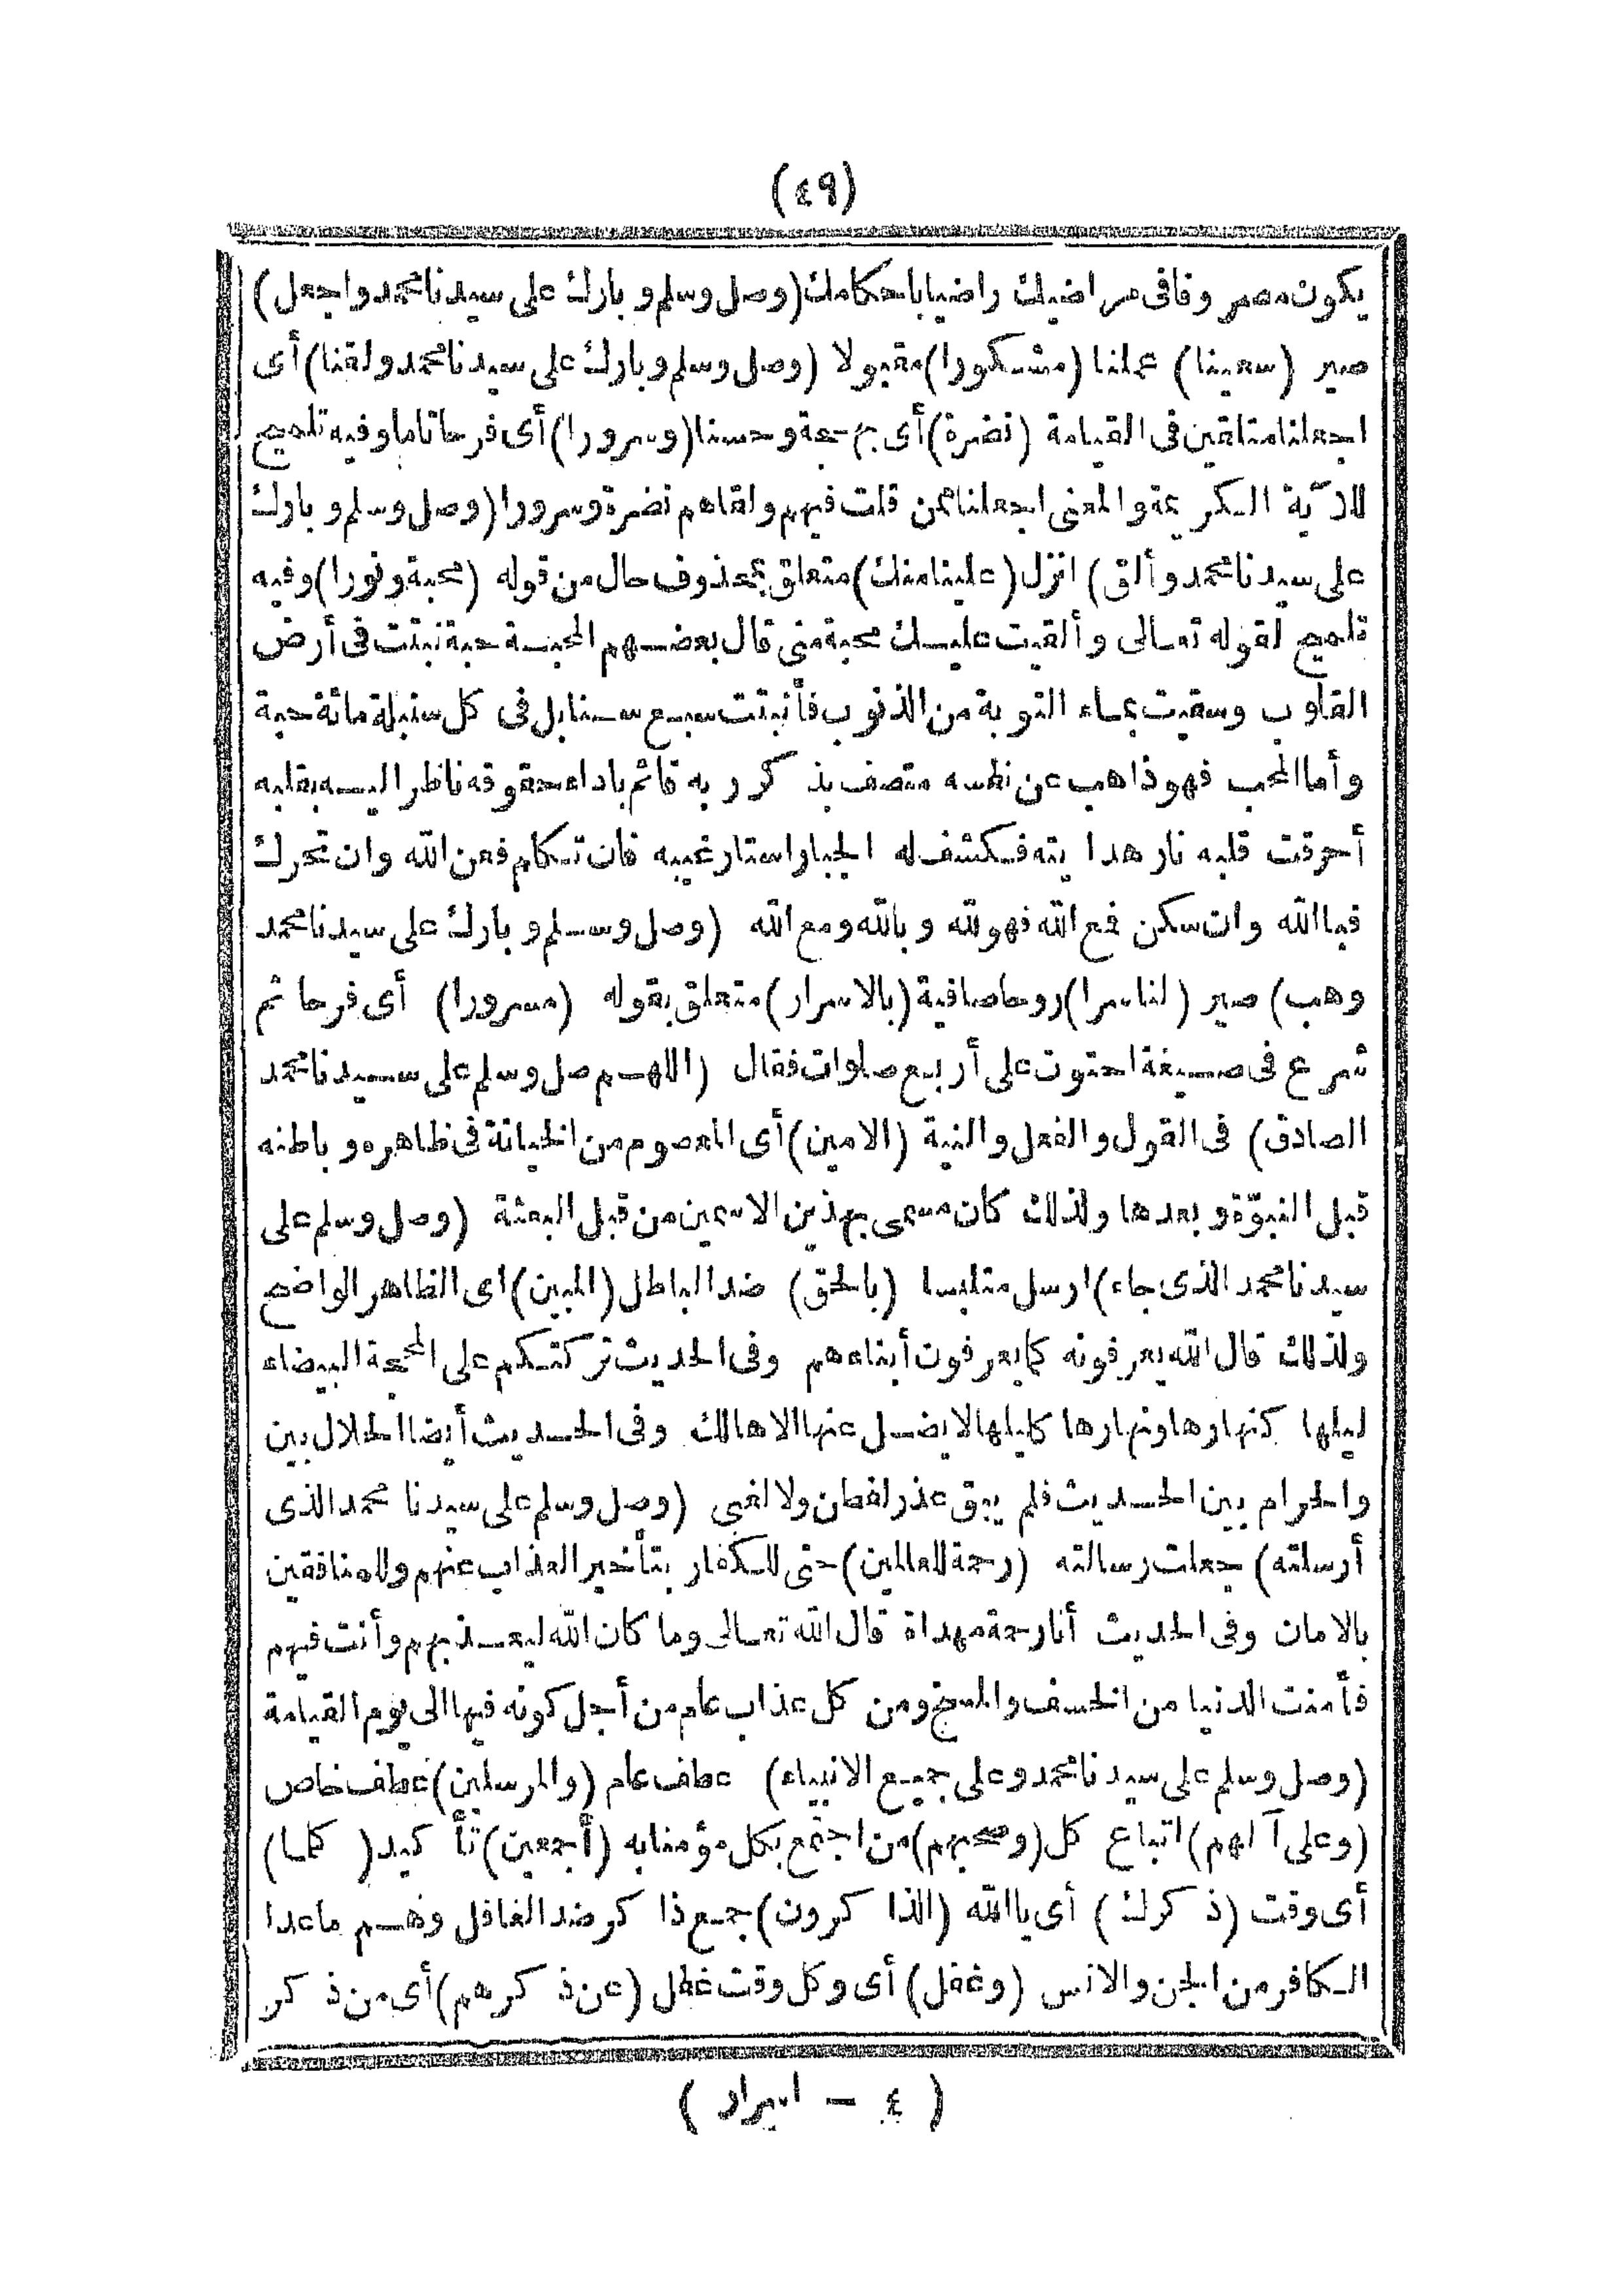 (٤٩)
يكون مصروفا فى مراضيك راضيا باحكامك (وصل وسلم وبارك على سيدنا محمد واجعل)
صير (سعينا) عملنا (مشكورا) مقبولا (وصل وسلم وبارك على سيدنا محمد ولقنا) أى
اجعلنا متلقين فى القيامة (نضرة) أى بهجة وحسنا (وسرورا) أى فرحا تاما وفيه تلميح
للآية الكريمة والمعنى اجعلنا ممن قلت فيهم ولقاهم نضرة وسرورا (وصل وسلم وبارك
على سيدنا محمد وألق) انزل (علينا منك) متعلق بمحذوف حال من قوله (محبة ونورا) وفيه
تلميح لقوله تعالى وألقيت عليك محبة منى قال بعضهم المحبة حبة نبتت فى أرض
القلوب وسقيت بماء التوبة من الذنوب فأنبتت سبع سنابل فى كل سنبلة مائة حبة
وأما المحب فهو ذاهب عن نفسه متصف بذكر ربه قائم باداء حقوقه ناظر اليه بقلبه
أحرقت قلبه نار هدايته فكشف له الجبار استار غيبه فان تكلم فعن الله وان تحرك
فبالله وان سكن فمع الله فهو لله وبالله ومع الله (وصل وسلم وبارك على سيدنا محمد
وهب) صير (لنا سرا) روحا صافية (بالاسرار) متعلق بقوله (مسرورا) أى فرحا ثم
شرع فى صيغة احتوت على أربع صلوات فقال (اللهم صل وسلم على سيدنا محمد
الصادق) فى القول والفعل والنية (الامين) أى المعصوم من الخيانة فى ظاهره وباطنه
قبل النبوّة وبعدها ولذلك كان مسمى بهذين الاسمين من قبل البعثة (وصل وسلم على
سيدنا محمد الذى جاء) ارسل متلبسا (بالحق) ضد الباطل (المبين) اى الظاهر الواضح
ولذلك قال الله يعرفونه كما يعرفون أبناءهم وفى الحديث تركتكم على المحجة البيضاء
ليلها كنهارها ونهارها كليلها لا يضل عنها الا هالك وفى الحديث أيضا الحلال بين
والحرام بين الحديث فلم يبق عذر لفطن ولا لغبى (وصل وسلم على سيدنا محمد الذى
أرسلته) جعلت رسالته (رحمة للعالمين) حتى للكفار بتأخير العذاب عنهم وللمنافقين
بالامان وفى الحديث أنا رحمة مهداة قال الله تعالى وما كان الله ليعذبهم وأنت فيهم
فأمنت الدنيا من الخسف والمسخ ومن كل عذاب عام من أجل كونه فيها الى يوم القيامة
(وصل وسلم على سيدنا محمد وعلى جميع الانبياء) عطف عام (والمرسلين) عطف خاص
(وعلى آلهم) اتباع كل (وصحبهم) من اجتمع بكل مؤمنا به (أجمعين) تأكيد (كلما)
أى وقت (ذكرك) أى يا الله (الذاكرون) جمع ذاكر ضد الغافل وهم ما عدا
الكافر من الجن والانس (وغفل) أى وكل وقت غفل (عن ذكرهم) أى من ذكر
( ٤ – اسرار )